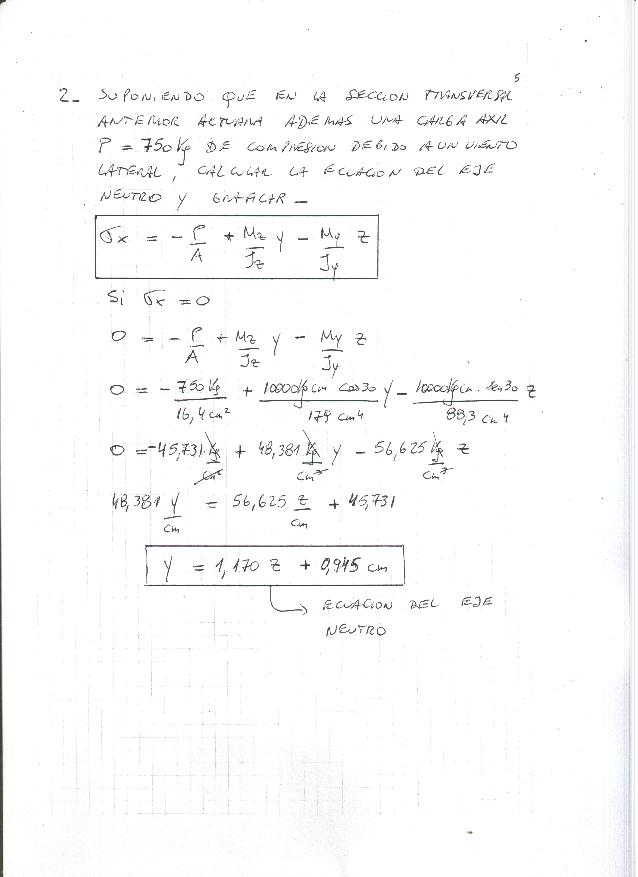 5
2- SUPONIENDO QUE EN LA SECCION TRANSVERSAL
ANTERIOR ACTUARA ADEMAS UNA CARGA AXIL
P = 750 Kg DE COMPRESION DEBIDO A UN VIENTO
LATERAL, CALCULAR LA ECUACION DEL EJE
NEUTRO Y GRAFICAR -
σx = - P/A + Mz/Jz y - My/Jy z
Si σx = 0
0 = - P/A + Mz/Jz y - My/Jy z
0 = - 750 Kg/16,4 cm² + 10000 Kg cm cos30/179 cm4 y - 10000 Kg cm . sen30/88,3 cm4 z
0 = -45,731 Kg/cm² + 48,381 Kg/cm³ y - 56,625 Kg/cm³ z
48,381 y/cm = 56,625 z/cm + 45,731
y = 1,170 z + 0,945 cm
ECUACION DEL EJE
NEUTRO